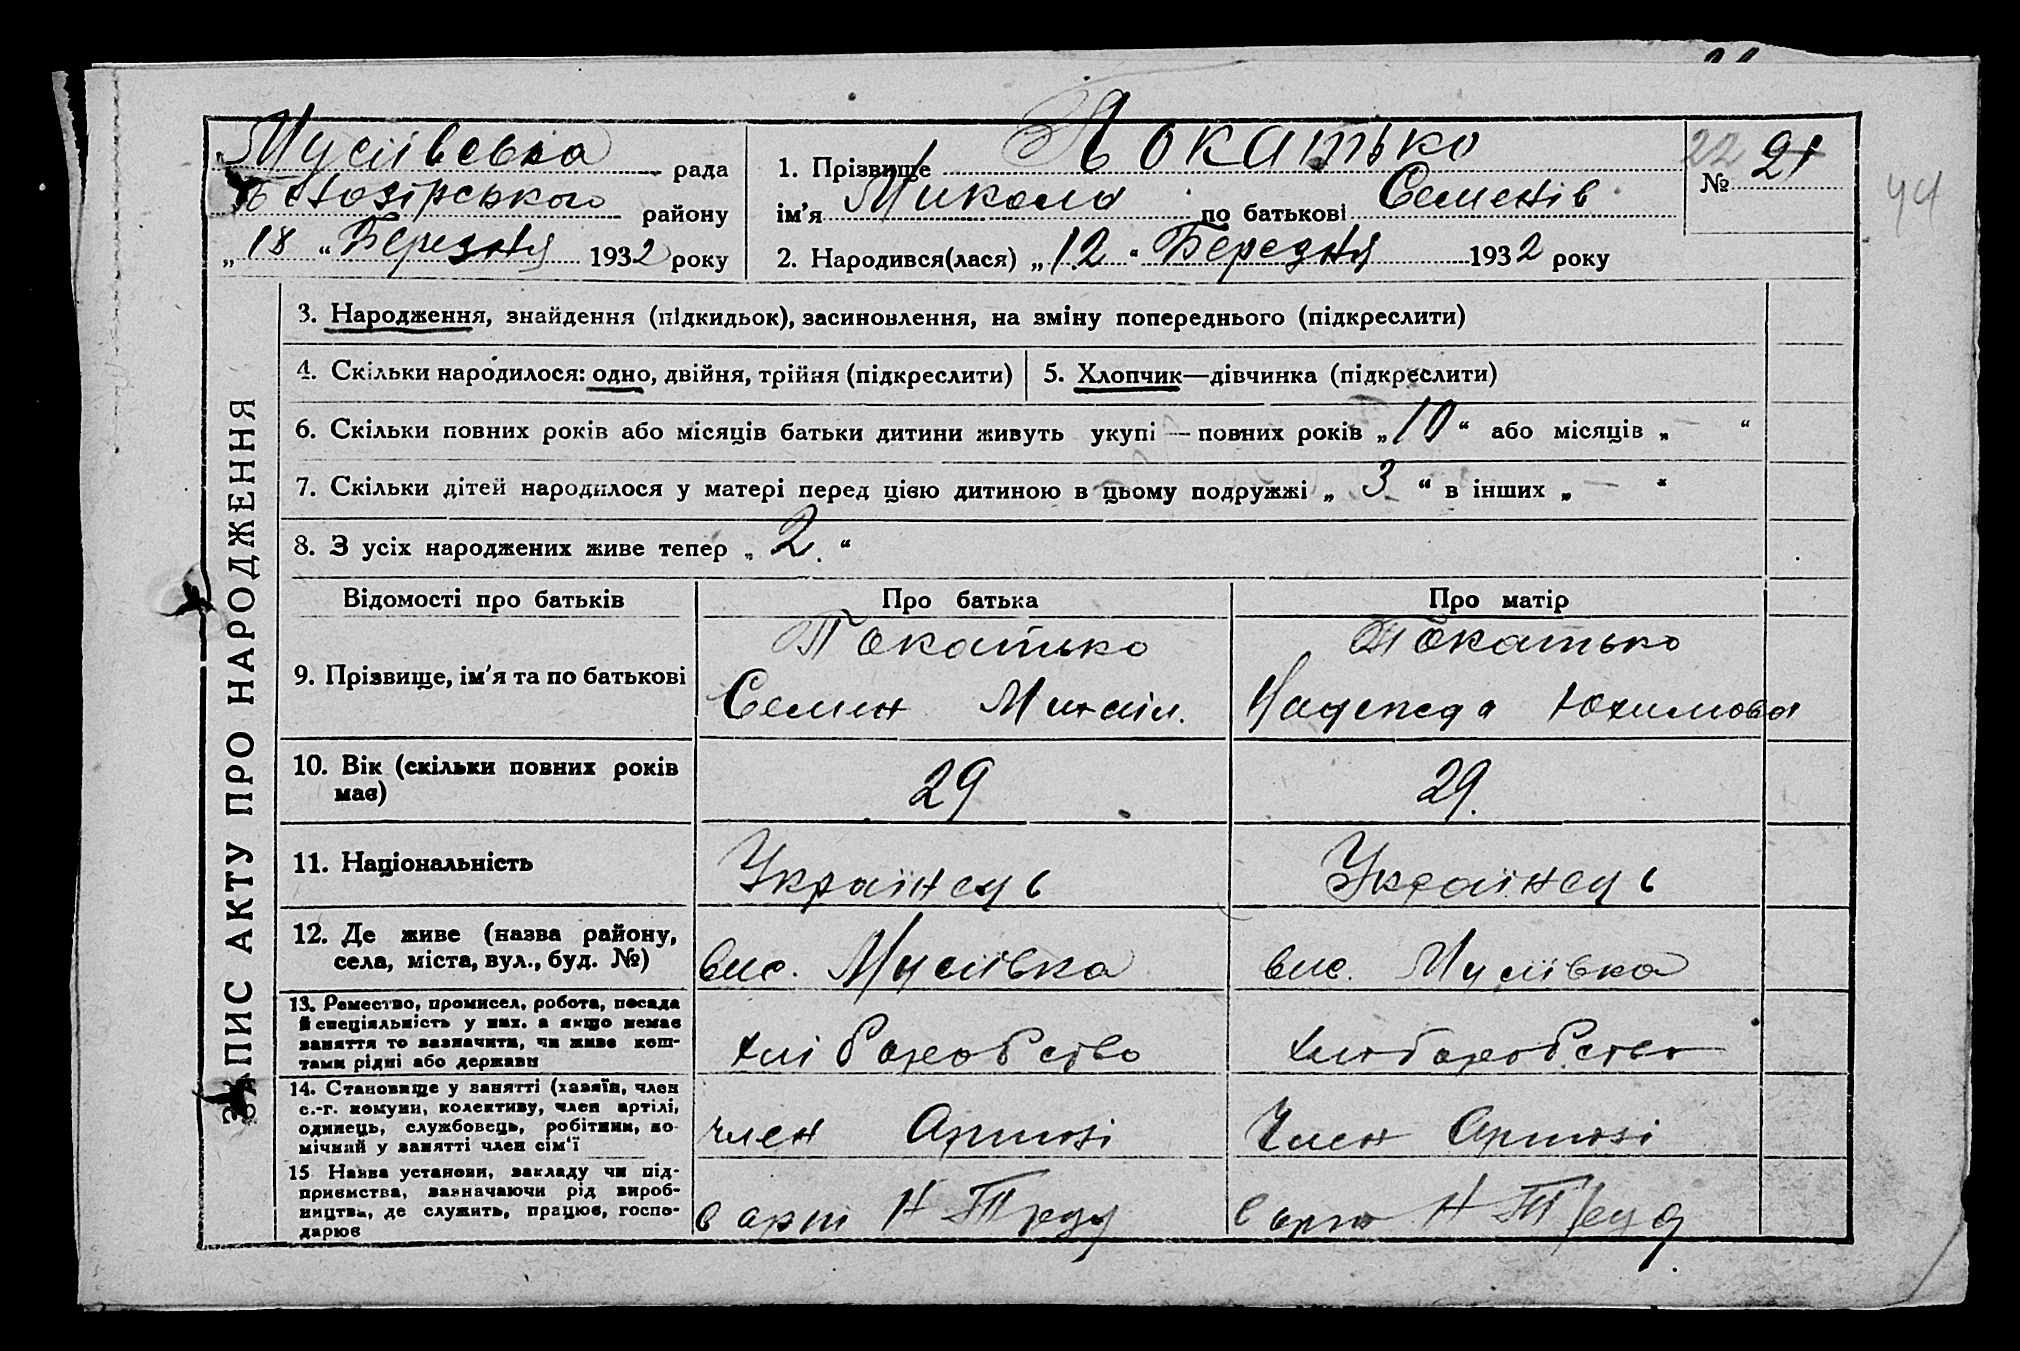 Мусіївська рада
району
„ 18 “ Березня 1932 року
1. Прізвище Покатько
ім'я Микола по батькові Семенів
2. Народився(лася) „ 12 “ Березня 1932 року
22 № 21
44
ЗАПИС АКТУ ПРО НАРОДЖЕННЯ
3. Народження, знайдення (підкидьок), засиновлення, на зміну попереднього (підкреслити)
4. Скільки народилося: одно, двійня, трійня (підкреслити)
5. Хлопчик—дівчинка (підкреслити)
6. Скільки повних років або місяців батьки дитини живуть укупі — повних років „ 10 “ або місяців „ — “
7. Скільки дітей народилося у матері перед цією дитиною в цьому подружжі „ 3 “ в інших „ — “
8. З усіх народжених живе тепер „ 2 “
Відомості про батьків Про батька Про матір
9. Прізвище, ім'я та по батькові
Покатько
Семен Михайл.
Покатько
Надежда Юхимова
10. Вік (скільки повних років
має)
29
29.
11. Національність
Українець
Українець
12. Де живе (назва району,
села, міста, вул., буд. №)
вис. Мусіївка
вис. Мусіївка
13. Ремество, промисел, робота, посада
й спеціяльність у них, а якщо немає
заняття то зазначити, чи живе кош-
тами рідні або держави
хліборобство
хліборобство
14. Становище у занятті (хазяїн, член
с.-г. комуни, колективу, член артілі,
одинець, службовець, робітник, по-
мічний у занятті член сім'ї
член Артілі
Член Артілі
15 Назва установи, закладу чи під-
приємства, зазначаючи рід вироб-
ництва, де служить, працює, госпо-
дарює
в арт Н Труд
в арт Н Труд